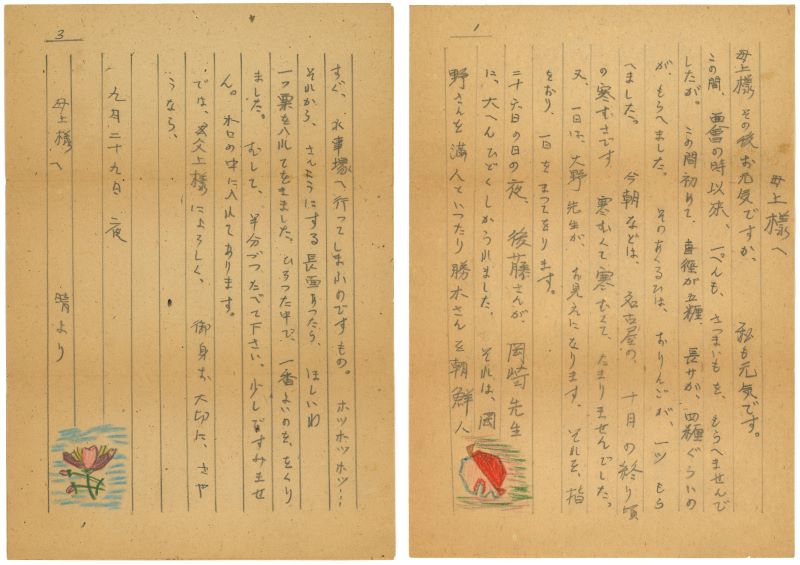 1
母上様へ
母上様 その後お元気ですか。 私も元気です。
この間、面會の時以来、一ぺんも、さつまいもを、もらへませんで
したが。この間初めて、直径が五糎、長サが、四糎ぐらいの
が、もらへました。 そのあくるひは、おりんごが、一ツ もら
へました。 今朝などは、名古屋の 十月の終り頃
の寒むさです 寒むくて寒むくて、たまりませんでした。
又、一日は、大野先生が、お見えになります。それを、指
をおり、一日をまつてをります。
二十六日の日の夜、後藤さんが、岡崎先生
に、大へんひどくしかられました。それは、岡
野さんを満人といつたり勝木さんを朝鮮人
3
すぐ、水車塚へ行ってしまふのですもの。ホツホツホツ…
それから、さんようにする あつたら、ほしいわ
一つ栗を入れてをきました。ひろつた中で、一番よいのを、をくり
ました。むして、半分づつたべて下さい。少しですみませ
ん。 の中に入れてあります。
では、 父上様によろしく、御身お大切に、さや
うなら、
九月二十九日 夜
母上様へ
晴より